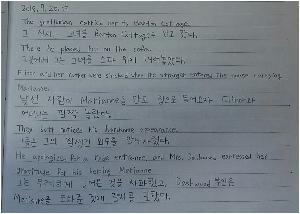 2018. 9. 20. 목
The gentleman carries her to Barton Cottage.
그 신사, 그녀를 Barton Cottage로 안고 갔다.
There he places her on the sofa.
그곳에서 그는 그녀를 소파 위에 내려놓았다.
Elinor and her mother were shocked when the stranger entered the house carrying
Marianne.
낯선 사람이 Marianne을 안고 집으로 들어오자 Elinor와
어머니는 깜짝 놀랐다.
They both notice his handsome appearance.
그들은 그의 잘생긴 외모를
He apologizes for a rude entrance, and Mrs. Dashwood expressed her
gratitude for his helping Marianne.
그는 무례하게 들어온 것을 사과했고, Dashwood 부인은
Marianne을 도와준 것에 감사를 표했다.